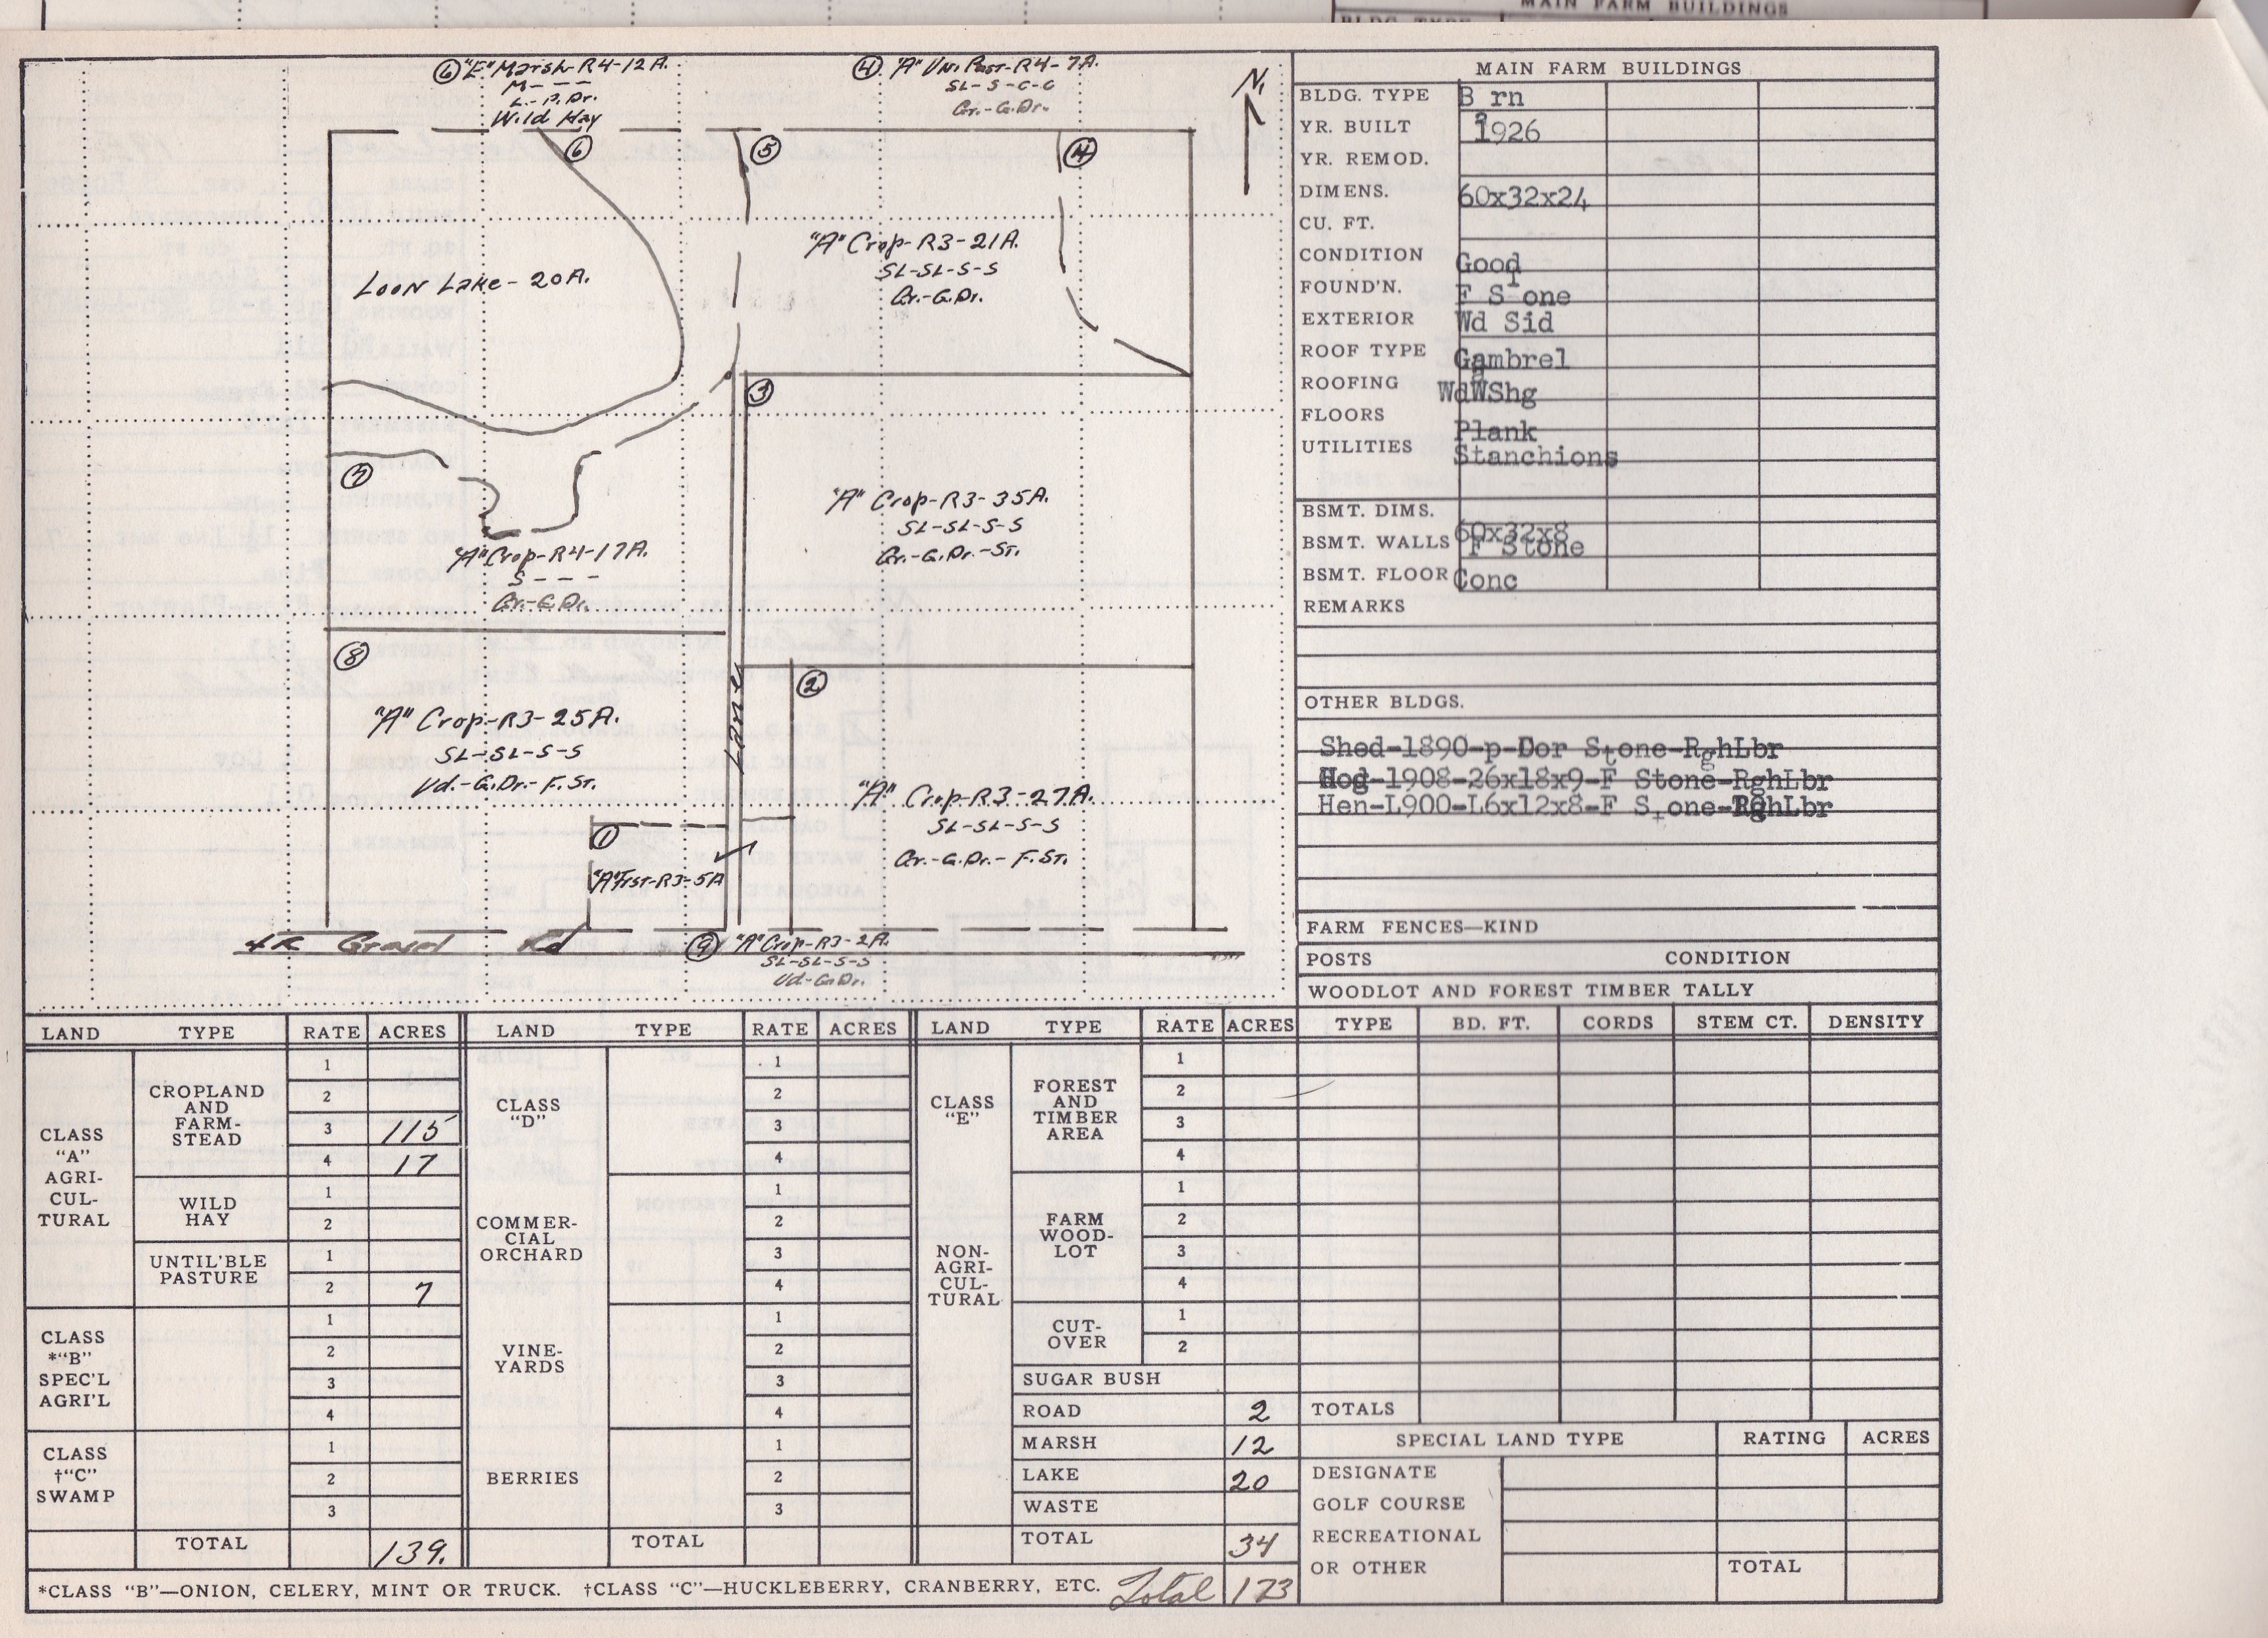 MAIN FARM BUILDINGS
BLDG. TYPE
⑥ "E" Marsh-R4-12A.
M- - -
L.-P.Dr.
Wild Hay
④ "A" Unt. Past-R4-7A.
SL-S-C-C
Gr.-G.Dr.
N.
⑥
⑤
④
"A" Crop-R3-21A.
SL-SL-S-S
Gr.-G.Dr.
Loon Lake-20A.
③
⑦
"A" Crop-R3-35A.
SL-SL-S-S
Gr.-G.Dr.-St.
"A" Crop-R4-17A.
S - - -
Gr.-G.Dr.
⑧
②
Lane
"A" Crop-R3-25A.
SL-SL-S-S
Ud.-G.Dr.-F.St.
"A" Crop-R3-27A.
SL-SL-S-S
Gr.-G.Dr.-F.St.
①
"A" Frst-R3-5A
Gravel Rd
⑨ "A" Crop-R3-2A.
SL-SL-S-S
Ud-G.Dr.
MAIN FARM BUILDINGS
BLDG. TYPE Barn
YR. BUILT 1926
YR. REMOD.
DIMENS. 60x32x24
CU. FT.
CONDITION Good
FOUND'N. F Stone
EXTERIOR Wd Sid
ROOF TYPE Gambrel
ROOFING WdWShg
FLOORS Plank
UTILITIES Stanchions
BSMT. DIMS. 60x32x8
BSMT. WALLS F Stone
BSMT. FLOOR Conc
REMARKS
OTHER BLDGS.
Shed-1890-p-Dor Stone-RghLbr
Hog-1908-26x18x9-F Stone-RghLbr
Hen-L900-L6x12x8-F Stone-RghLbr
FARM FENCES—KIND
POSTS CONDITION
WOODLOT AND FOREST TIMBER TALLY
TYPE BD. FT. CORDS STEM CT. DENSITY
TOTALS
SPECIAL LAND TYPE RATING ACRES
DESIGNATE
GOLF COURSE
RECREATIONAL
OR OTHER TOTAL
LAND TYPE RATE ACRES
CLASS
"A"
AGRI-
CUL-
TURAL
CROPLAND
AND
FARM-
STEAD
1
2
3 115
4 17
WILD
HAY
1
2
UNTIL'BLE
PASTURE
1
2 7
CLASS
*"B"
SPEC'L
AGRI'L
1
2
3
4
CLASS
†"C"
SWAMP
1
2
3
TOTAL 139.
LAND TYPE RATE ACRES
CLASS
"D"
1
2
3
4
COMMER-
CIAL
ORCHARD
1
2
3
4
VINE-
YARDS
1
2
3
4
BERRIES
1
2
3
TOTAL
LAND TYPE RATE ACRES
CLASS
"E"
NON-
AGRI-
CUL-
TURAL
FOREST
AND
TIMBER
AREA
1
2
3
4
FARM
WOOD-
LOT
1
2
3
4
CUT-
OVER
1
2
SUGAR BUSH
ROAD 2
MARSH 12
LAKE 20
WASTE
TOTAL 34
*CLASS "B"—ONION, CELERY, MINT OR TRUCK. †CLASS "C"—HUCKLEBERRY, CRANBERRY, ETC. Total 173